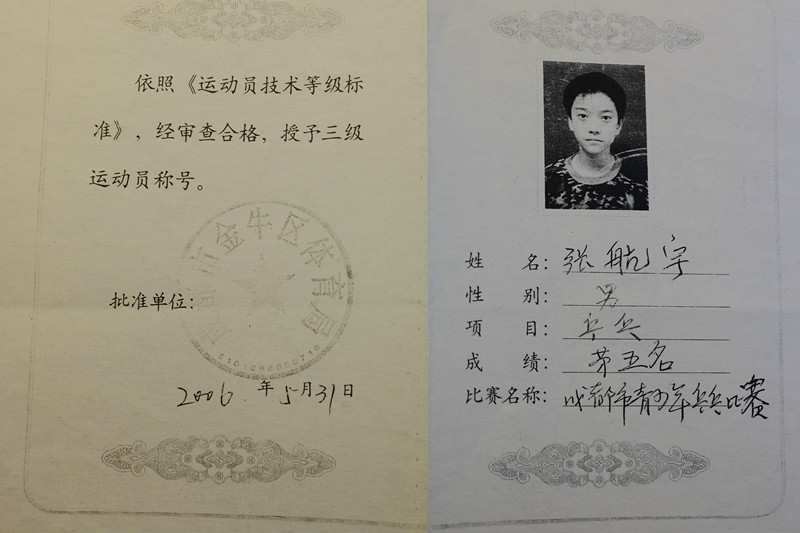 依照《运动员技术等级标
准》，经审查合格，授予三级
运动员称号。
成都市金牛区体育局
批准单位：
2006年5月31日
姓名：张航宇
性别：男
项目：乒乓
成绩：第五名
比赛名称：成都市青少年乒乓比赛